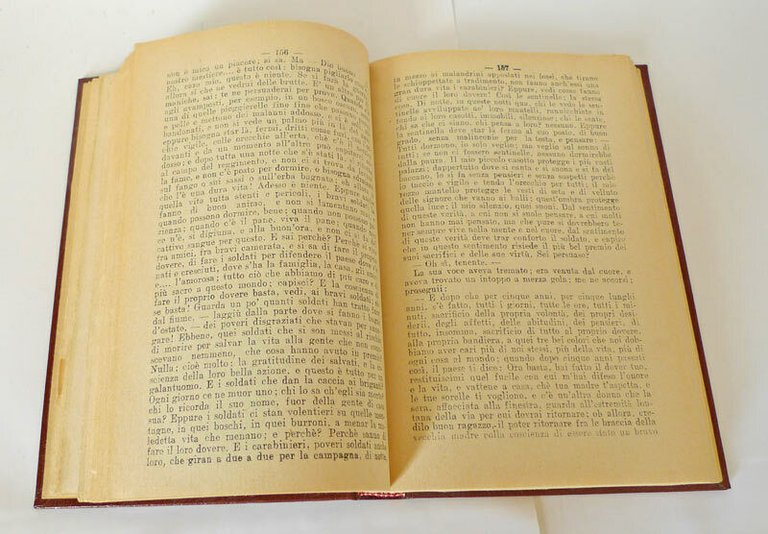 — 156 —
non è mica un piacere; si sa. Ma
nostro mestiere.... è tutto così; bisogna pigliarlo
Eh, caro mio, questo è niente. Se il
allora sì che ne vedrai delle brutte. E' un altro
maniche, sai; te ne persuaderai per prova. Quando
agli avamposti, per esempio, in un bosco, di notte
una di quelle pioggerelle fine fine che penetrano
e pelle e mettono dei malanni addosso
naturali, e non si vede un palmo più in
eppure bisogna star là, fermi, dritti come
cchio vigile, colle orecchie all'erta, chè c'è il
davanti e da un momento all'altro può
dosso; e dopo tutta una notte che s'è stati là
al campo del reggimento, e non ci si trova da
la fame, e non c'è posto per dormire, o bisogna
sul fango o sui sassi o sull'erba bagnata; oh
ch'è una dura vita! Adesso è niente. Eppure
quella vita tutta stenti e pericoli, i bravi soldati
fanno di buon animo, e non si lamentano
quando possono dormire, bene; quando non possono
sienza; quando c'è il pane, viva il pane; quando
ce n'è, si digiuna, o alla buon'ora, e non ci si
cattivo sangue per questo. E sai perchè? Perchè
fra amici, fra bravi camerata, e si sa di fare il proprio
dovere, di fare da soldati per difendere il paese dove
nati e cresciuti, dove s'ha la famiglia, la casa, gli
e.... l'amorosa; tutto ciò che abbiamo di più caro e
più sacro a questo mondo; capisci? E la coscienza
fare il proprio dovere basta, vedi, ai bravi soldati
se basta! Guarda un po' quanti soldati han tratto
dal fiume, — laggiù dalla parte dove si fanno i
d'estate, — dei poveri disgraziati che stavan per
gare! Ebbene, quei soldati che si son messi al rischio
di morire per salvar la vita alla gente che non
scevano nemmeno, che cosa hanno avuto in premio
Nulla; cioè molto: la gratitudine dei salvati, e la co-
scienza della loro bella azione, e questo è tutto per un
galantuomo. E i soldati che dan la caccia ai briganti
Ogni giorno ce ne muor uno; chi lo sa ch'egli sia morto
chi lo ricorda il suo nome, fuor della gente di casa
sua? Eppure i soldati ci stan volentieri su quelle mon-
tagne, in quei boschi, in quei burroni, a menar la
ledetta vita che menano; e perchè? Perchè sanno di
fare il loro dovere. E i carabinieri, poveri soldati anche
loro, che giran a due a due per la campagna, di notte,
— 157 —
in mezzo ai malandrini appostati nei fossi, che tirano
le schioppettate a tradimento, non fanno anch'essi una
dura vita i carabinieri? Eppure, vedi come fanno
di cuore il loro dovere! Così le sentinelle; la stessa
cosa. Di notte, in queste notti qua, chi le vede le senti-
nelle avviluppate ne' loro mantelli, rannicchiate in
fondo ai loro casotti, immobili, silenziose; chi le sente,
chi sa che ci siano, chi pensa a loro? nessuno. Eppure
la sentinella deve star là ferma al suo posto, di buon
grado, senza malinconie per la testa, e pensare: —
Tutti dormono, io solo veglio; ma veglio sul sonno di
tutti; e se non ci fossero sentinelle, nessuno dormirebbe
dalla paura. Il mio piccolo casotto protegge i più vasti
palazzi; dappertutto dove si canta e si suona e si fa del
baccano, lo si fa senza pensieri e senza sospetti perchè
io taccio e vigilo e tendo l'orecchio per tutti; il mio
mantello protegge le vesti di seta e di velluto
delle signore che vanno ai balli; quest'ombra protegge
quella luce; il mio silenzio, quei suoni. Dal sentimento
di queste verità, a cui non si suole pensare, a cui molti
non han mai pensato, ma che pur si dovrebbero te-
ner sempre vive nella mente e nel cuore, dal sentimento
di queste verità deve trar conforto il soldato, e sapere
che in questo sentimento risiede il più bel premio dei
suoi sacrifici e delle sue virtù. Sei persuaso?
— Oh sì, tenente. —
La sua voce aveva tremato; era venuta dal cuore, e
aveva trovato un intoppo a mezza gola; me ne accordi;
proseguii:
— E dopo che per cinque anni, per cinque lunghi
anni, s'è fatto, tutti i giorni, tutte le ore, tutti i mi-
nuti, sacrificio della propria volontà, dei propri desi-
derii, degli affetti, delle abitudini, dei pensieri, di
tutto, insomma, sacrificio di tutto al proprio dovere,
alla propria bandiera, a quei tre bei colori che noi dob-
biamo aver cari più di noi stessi, più della vita, più di
ogni cosa al mondo; quando dopo cinque anni passati
così, il paese ti dice: Oro basta, hai fatto il dover tuo,
restituiscimi quel fucile con cui m'hai difeso l'onore
e la vita, e vattene a casa, chè tua madre t'aspetta, e
le tue sorelle ti vogliono, e c'è un'altra donna che la
sera, affacciata alla finestra, guarda all'estremità lon-
tana della via per cui devi ritornare; oh allora, cre-
dilo buon ragazzo, il poter ritornare fra le braccia della
vecchia madre colla coscienza di essere stato un bravo